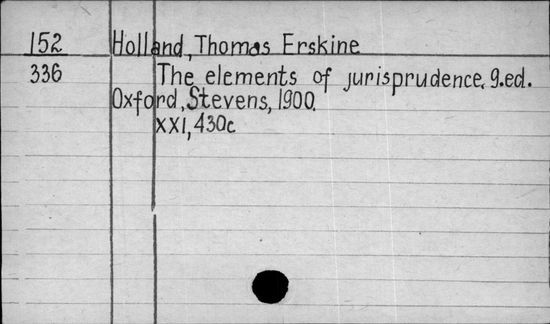 152 Holland, Thomas Erskine
336 The elements of jurisprudence, 9.ed.
Oxford, Stevens, 1900.
XXI, 430c